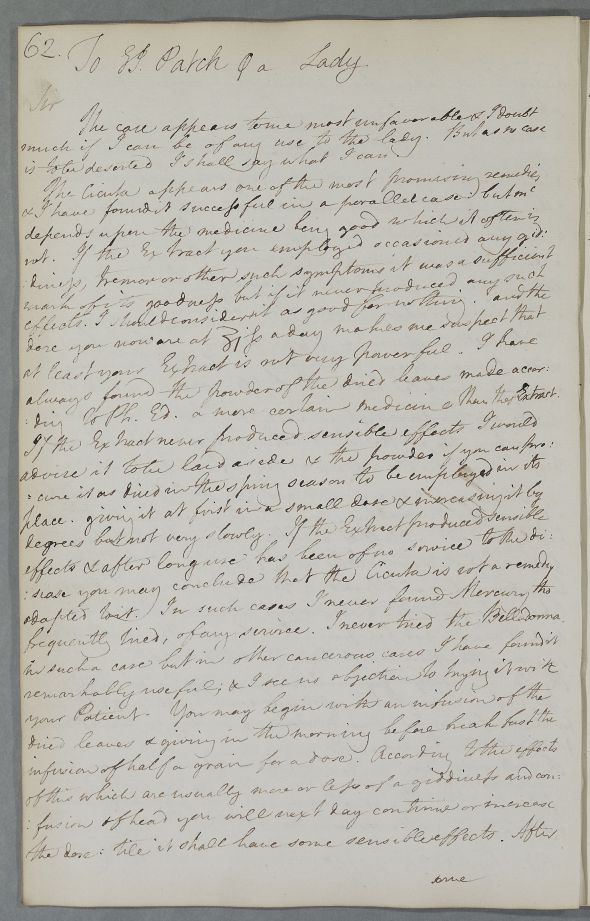 62.
To Dr. Patch for a Lady
Sir
The case appears to me most unfavorable & I doubt
much if I can be of any use to the lady. But as no case
is to be deserted I shall say what I can
The Cicuta appears one of the most promising remedies
& I have found it successful in a parallel case: but
depends upon the medicine being good which it often is
not. If the Extract you employed occasioned any gid:
:diness, tremor or other such symptoms it was a sufficient
mark of its goodness but if it never produced any such
effects. I should consider it as good for nothing. and the
dose you now are at a day makes me suspect that
at least your Extract is not very powerful. I have
always found the powder of the dried leaves made accor:
:ding to Ph. Ed. a more certain medicine than the Extract.
If the Extract never produced sensible effects I would
advise it to be laid aside & the powder if you can pro:
:cure it as dried in the spring season to be employed in its
place. giving it at first in a small dose & increasing it by
degrees but not very slowly. If the Extract produced sensible
effects & after long use has been of no service to the di:
:sease you may conclude that the Cicuta is not a remedy
adapted to it. In such cases I never found Mercury tho
frequently tried, of any service. I never tried the Belladonna
in such a case but in other cancerous cases I have found it
remarkably useful; & I see no objection to trying it with
your Patient. You may begin with an infusion of the
dried leaves & giving in the morning before breakfast the
infusion of half a grain for a dose. According to the effects
of this which are usually more or less of a giddiness and con:
:fusion of head you will next day continue or increase
the dose: till it shall have some sensible effects. After
some